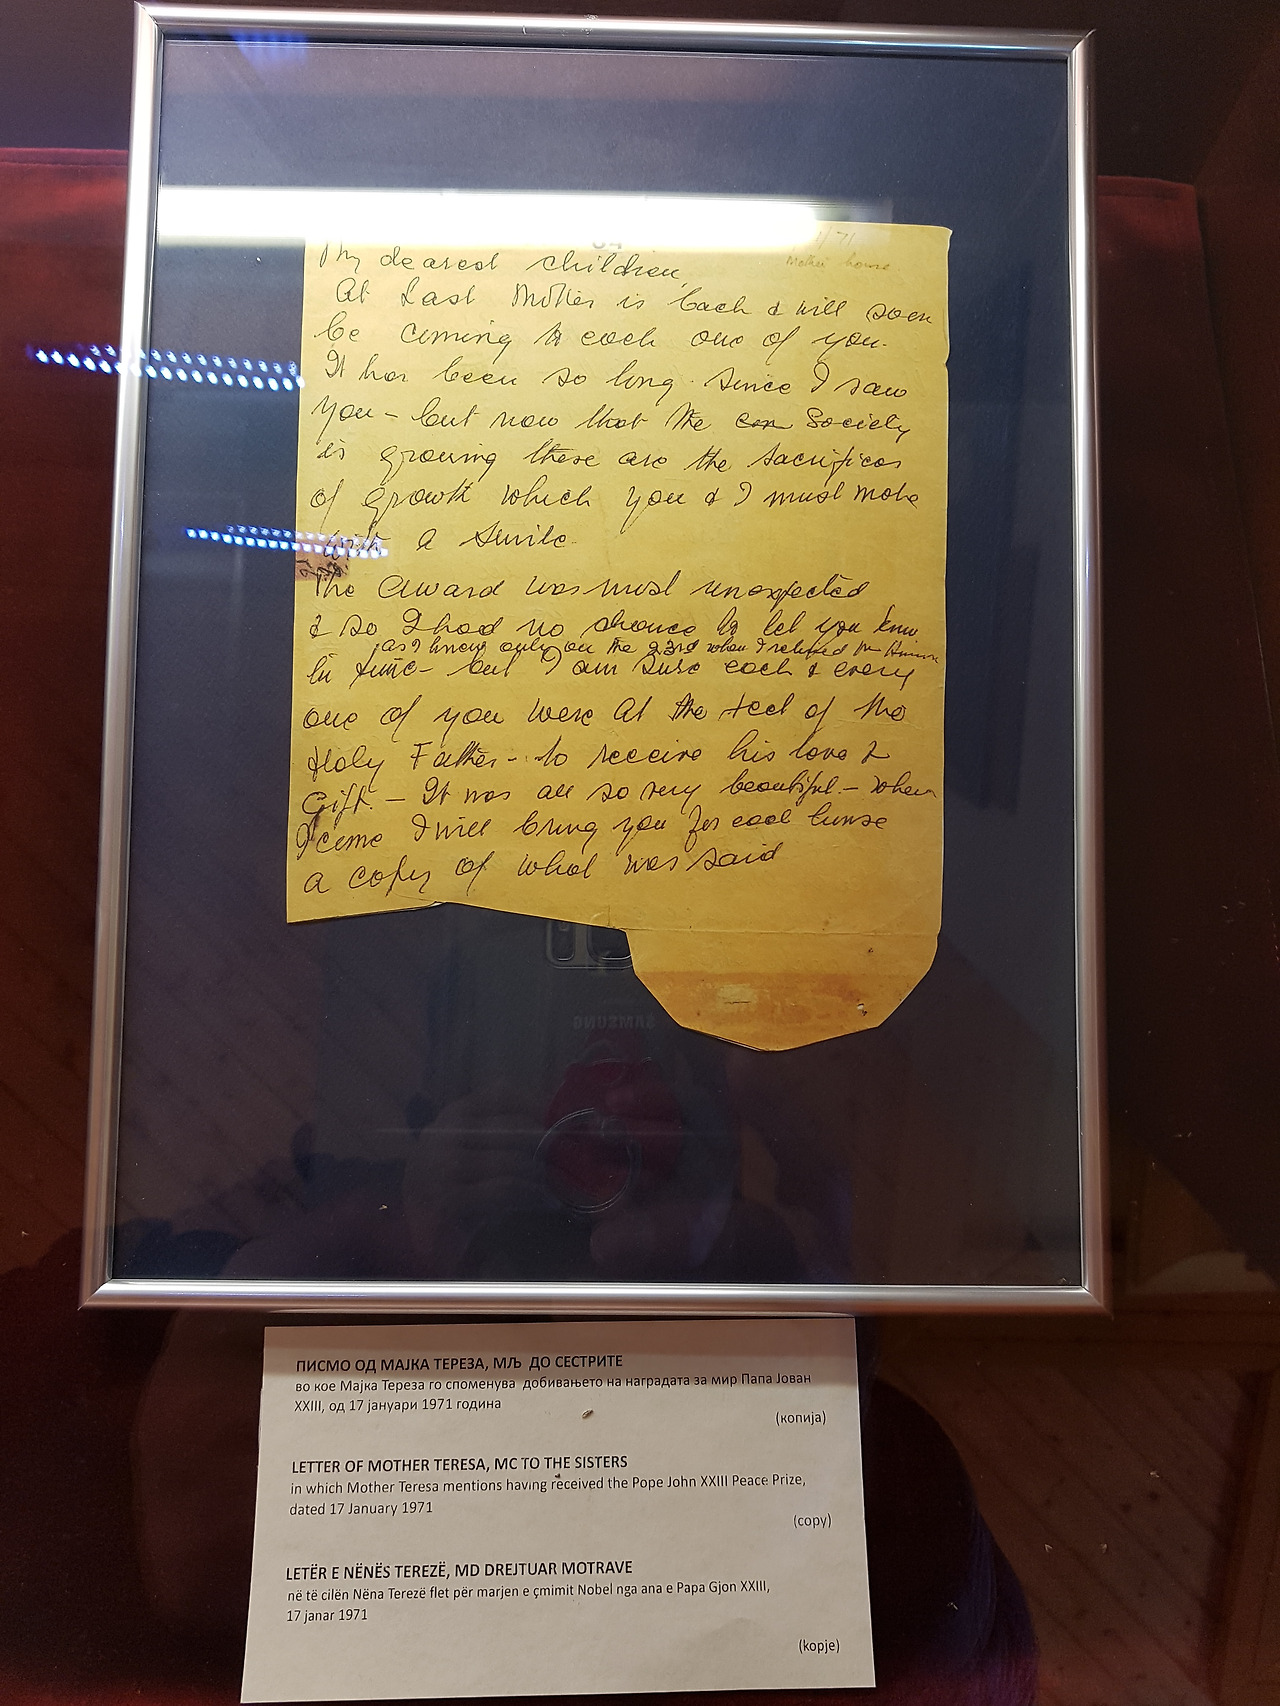 /71
Mother house
My dearest children,
At last Mother is back & will soon
be coming to each one of you.
It has been so long since I saw
you – but now that the con Society
is growing these are the sacrifices
of growth which you & I must make
with a smile.
The Award was most unexpected
& so I had no chance to let you know
as I knew only on the 23rd when I reached
in time – but I am sure each & every
one of you were at the feet of the
Holy Father – to receive his love &
Gift. – It was all so very beautiful – when
I come I will bring you for each house
a copy of what was said
SAMSUNG
ПИСМО ОД МАЈКА ТЕРЕЗА, МЉ ДО СЕСТРИТЕ
во кое Мајка Тереза го споменува добивањето на наградата за мир Папа Јован
XXIII, од 17 јануари 1971 година
(копија)
LETTER OF MOTHER TERESA, MC TO THE SISTERS
in which Mother Teresa mentions having received the Pope John XXIII Peace Prize,
dated 17 January 1971
(copy)
LETËR E NËNËS TEREZË, MD DREJTUAR MOTRAVE
në të cilën Nëna Terezë flet për marjen e çmimit Nobel nga ana e Papa Gjon XXIII,
17 janar 1971
(kopje)